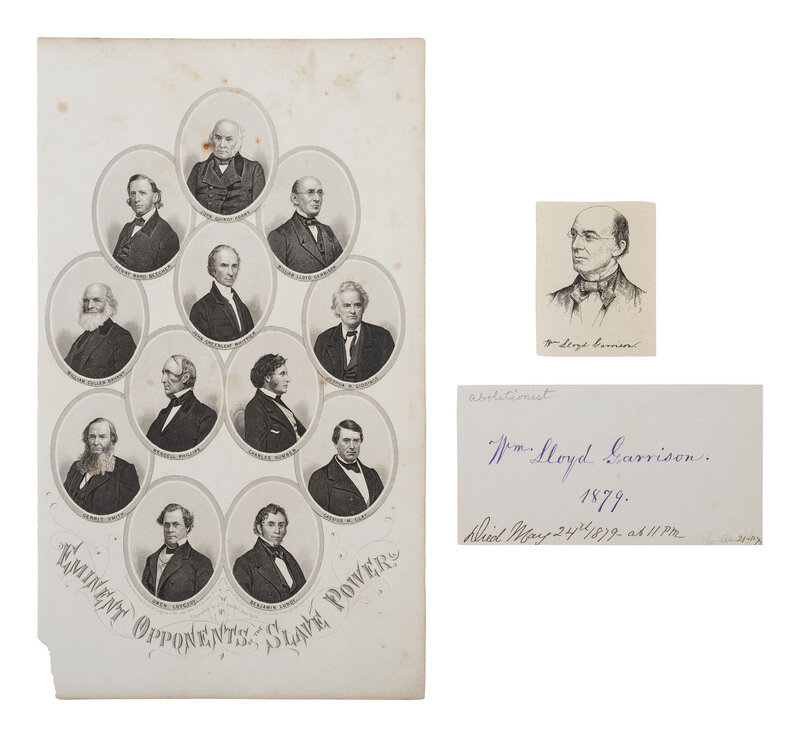 JOHN QUINCY ADAMS.
HENRY WARD BEECHER.
WILLIAM LLOYD GARRISON.
JOHN GREENLEAF WHITTIER
WILLIAM CULLEN BRYANT
JOSHUA R. GIDDINGS.
WENDELL PHILLIPS.
CHARLES SUMNER
GERRIT SMITH
CASSIUS M. CLAY.
OWEN LOVEJOY
BENJAMIN LUNDY
EMINENT OPPONENTS OF THE SLAVE POWER.
Wm. Lloyd Garrison.
abolitionist
Wm. Lloyd Garrison.
1879.
Died May 24th 1879 at 11 PM